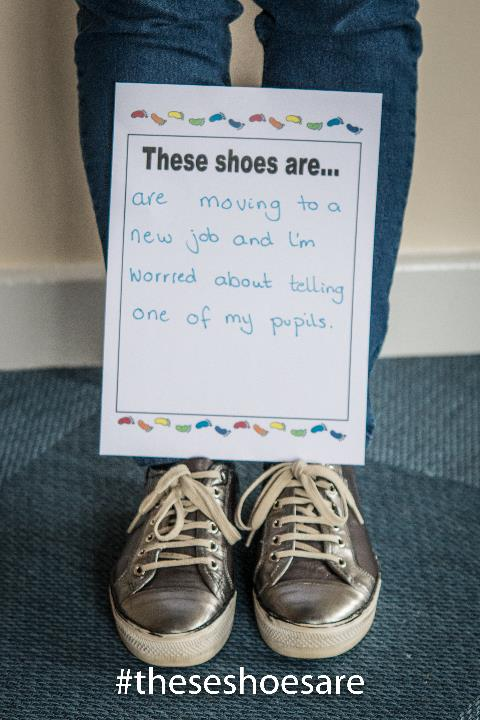 These shoes are...
are moving to a
new job and I'm
worried about telling
one of my pupils.
#theseshoesare